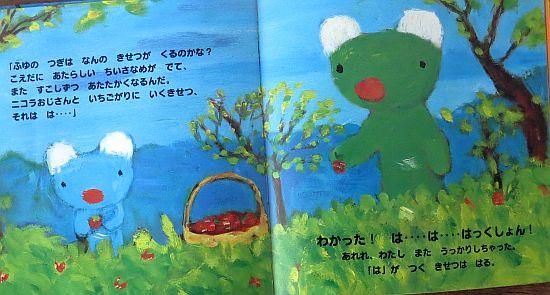 「ふゆの つぎは なんの きせつが くるのかな？
こえだに あたらしい ちいさなめが でて、
また すこしずつ あたたかくなるんだ。
ニコラおじさんと いちごがりに いくきせつ、
それは は‥‥」
わかった！ は‥‥は‥‥はっくしょん！
あれれ、わたし また うっかりしちゃった。
「は」が つく きせつは はる。